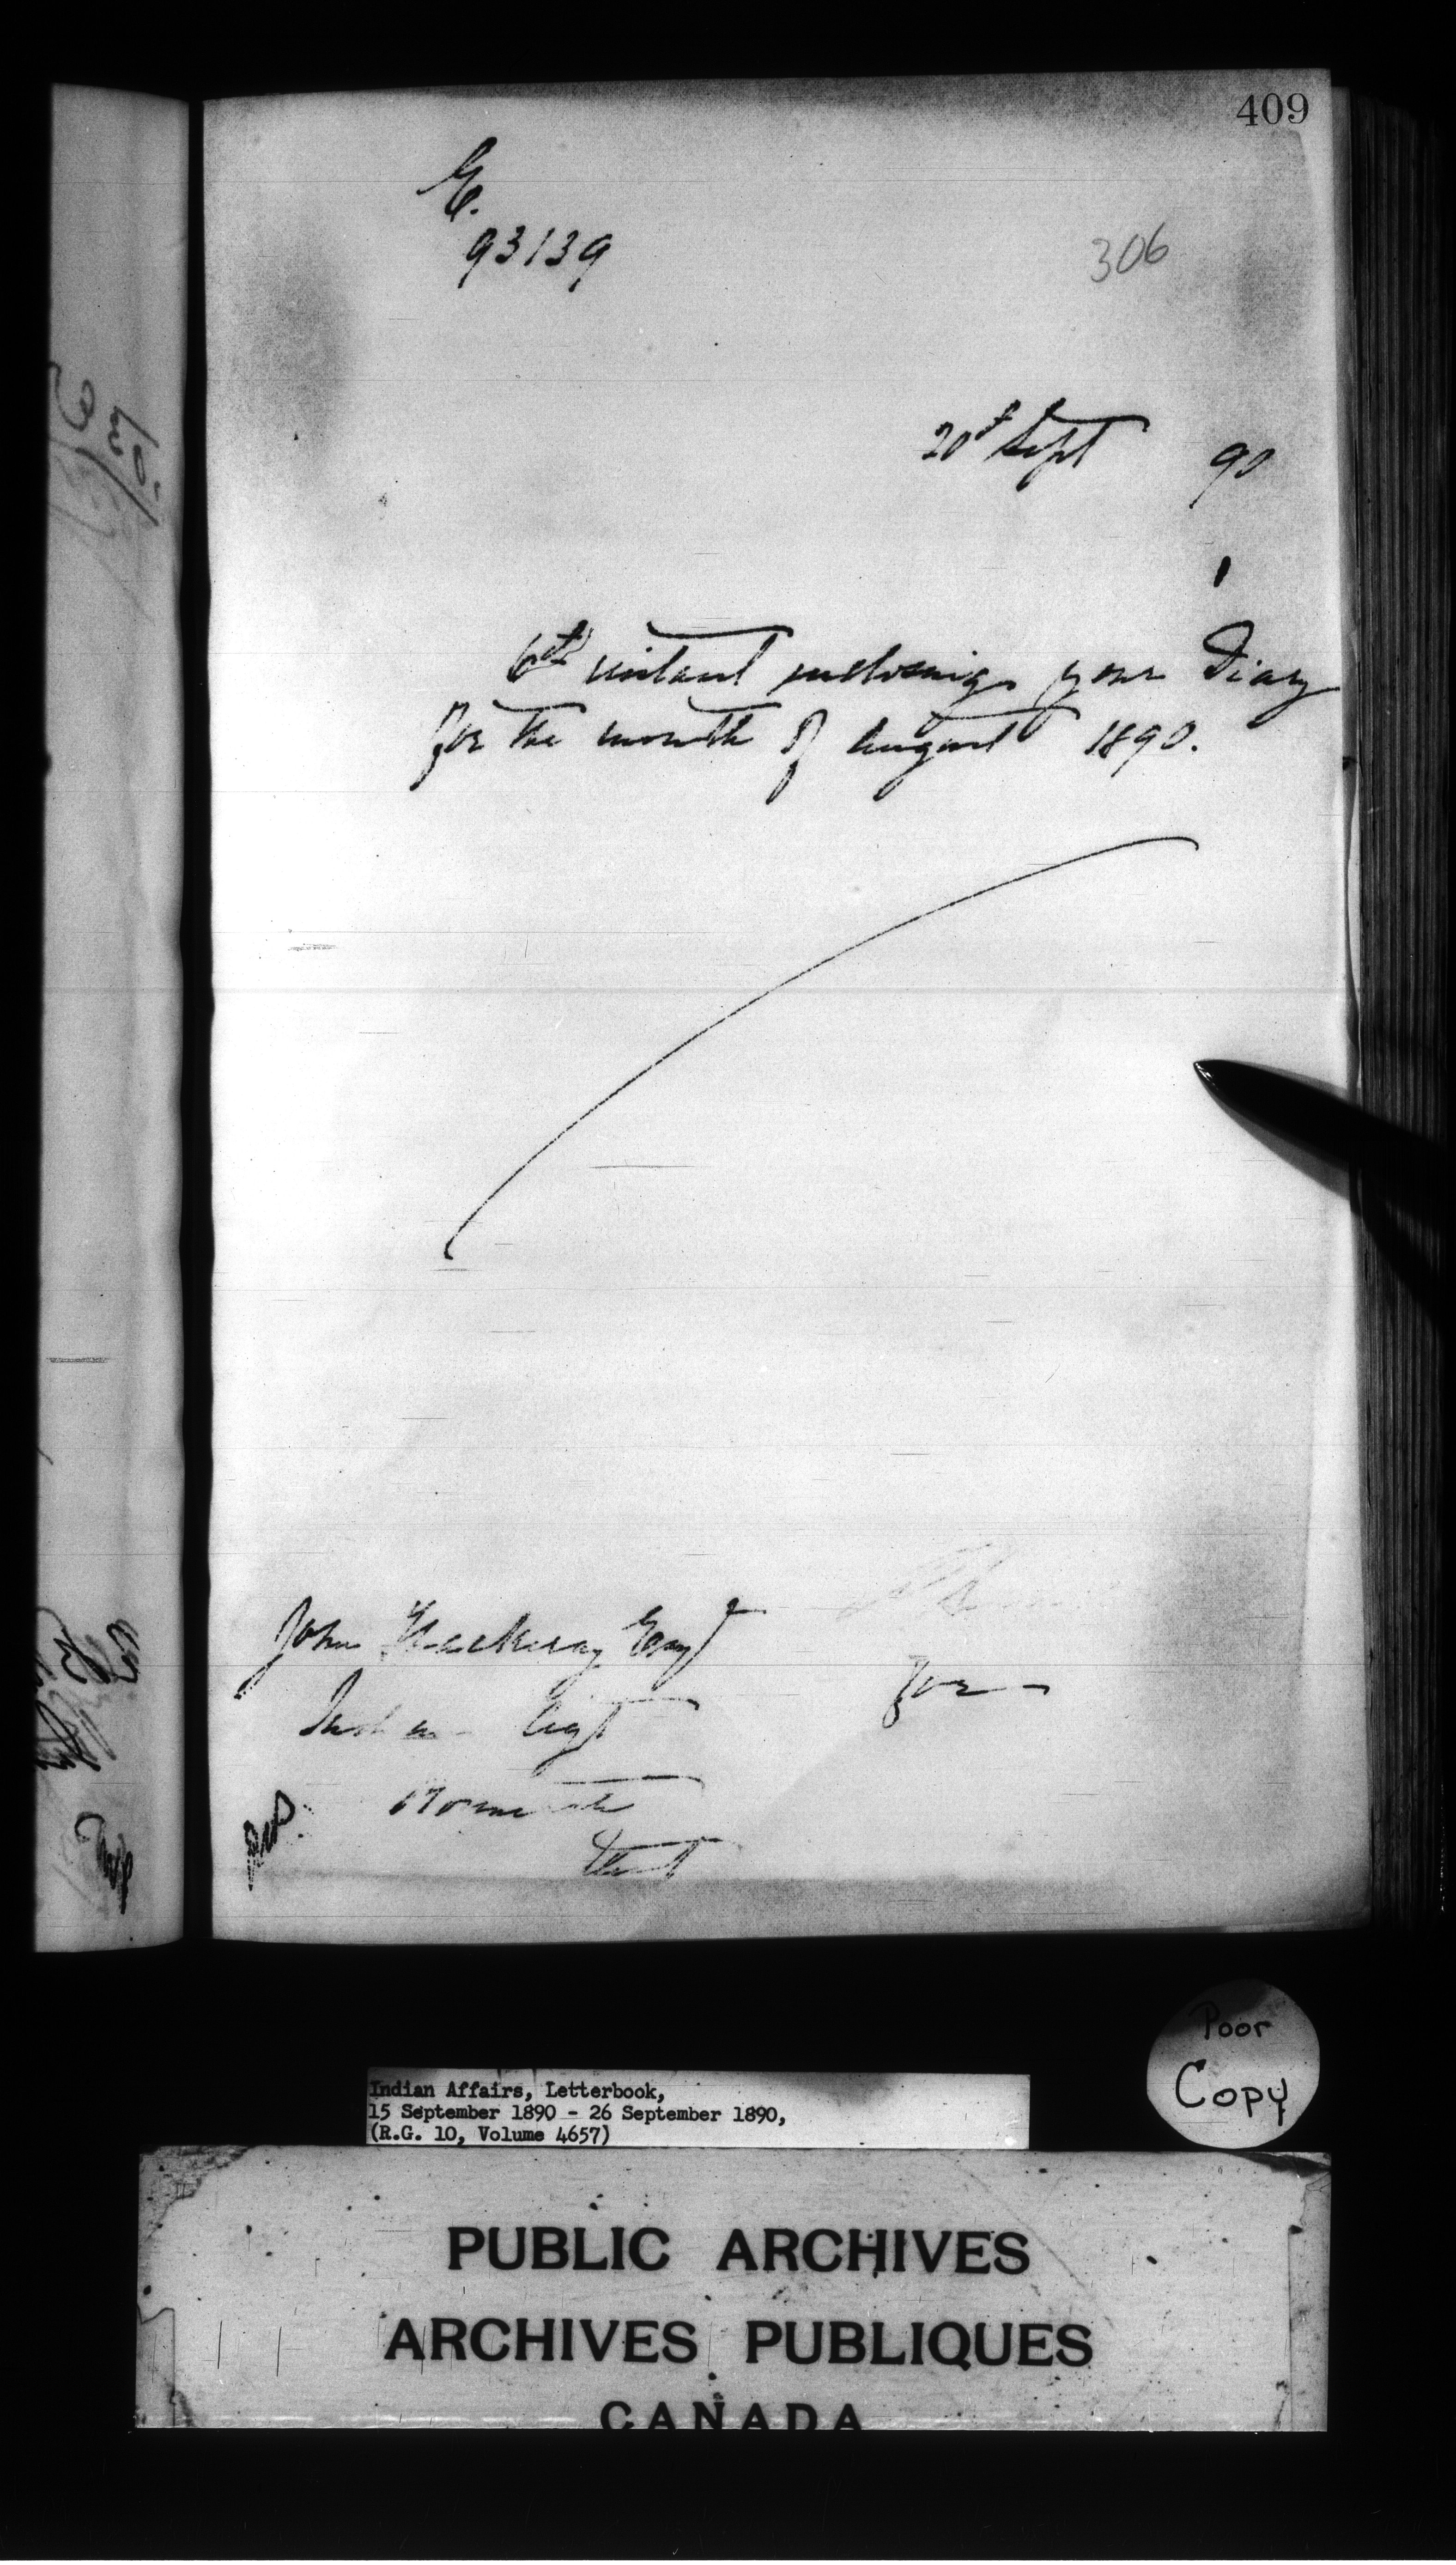 409
E.
93139
306
20th Sept 90
6th instant enclosing your Diary
for the month of August 1890.
John Thackeray Esqr
Indian Agt
for
Poor
Copy
Indian Affairs, Letterbook,
15 September 1890 - 26 September 1890,
(R.G. 10, Volume 4657)
PUBLIC ARCHIVES
ARCHIVES PUBLIQUES
CANADA